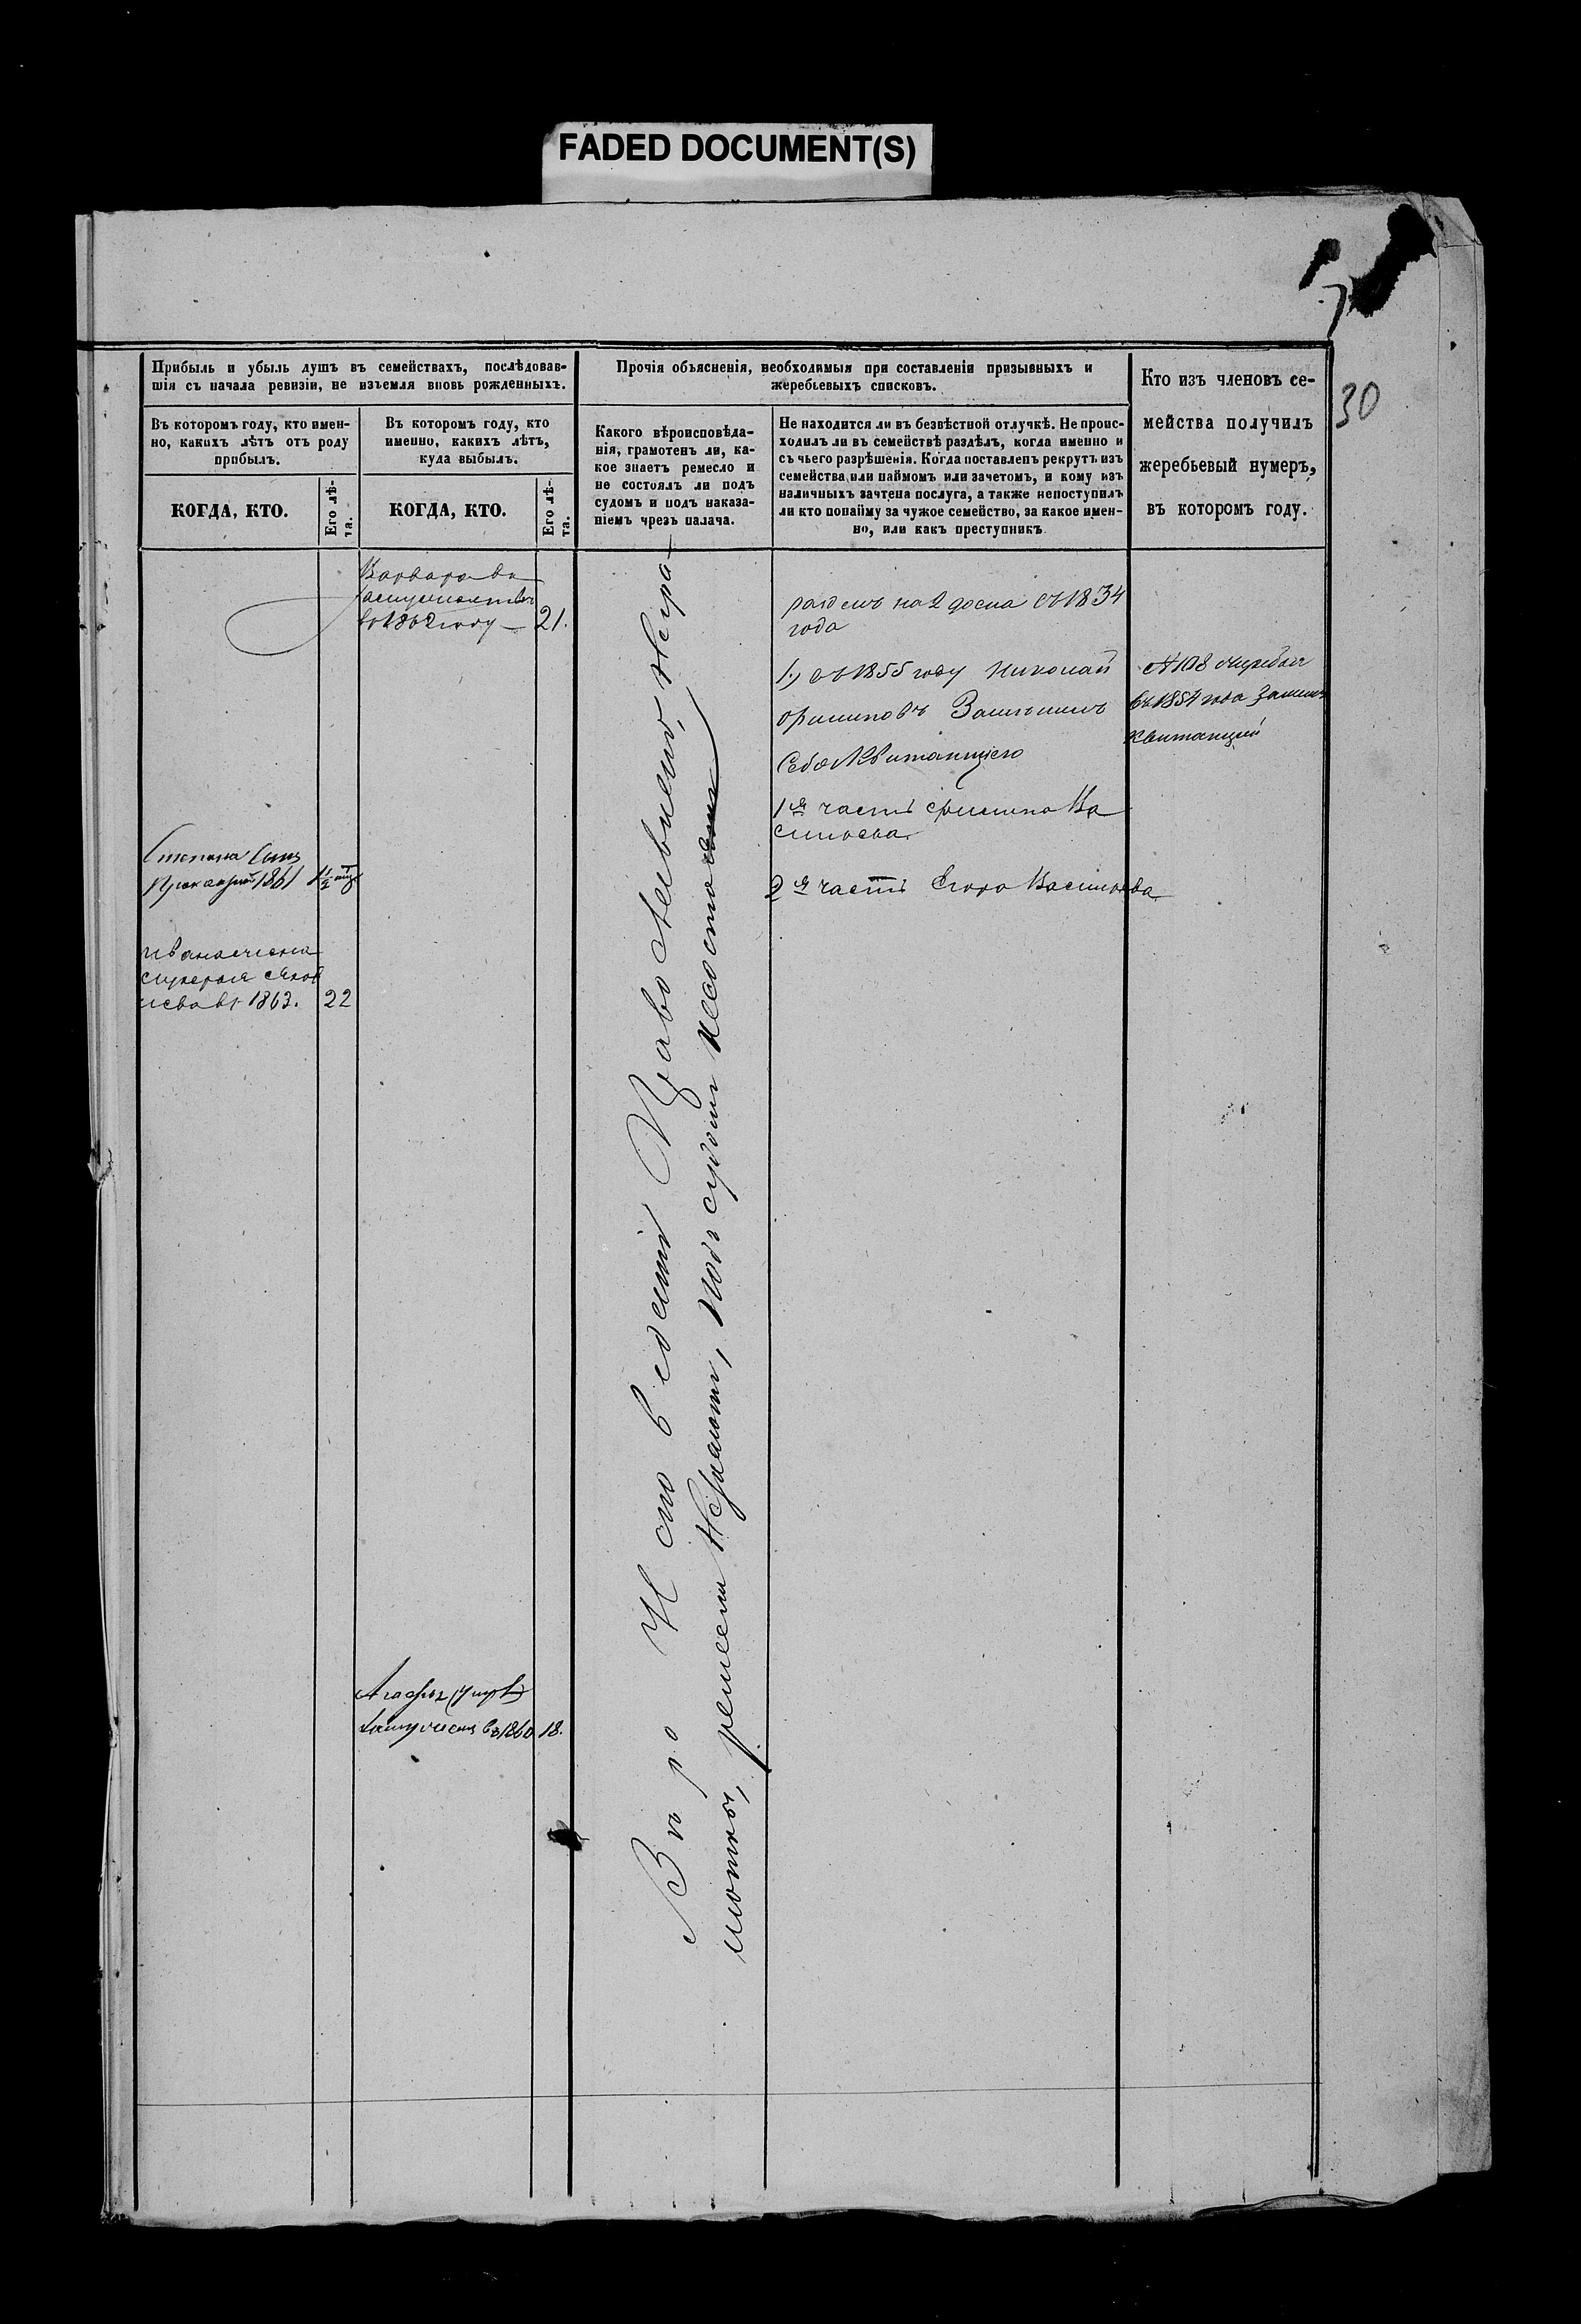 FADED DOCUMENT(S)
30
Прибыль и убыль душъ въ семействахъ, послѣдовав-
шія съ начала ревизіи, не изъемля вновь рожденныхъ.
Въ которомъ году, кто имен-
но, какихъ лѣтъ отъ роду
прибылъ.
Въ которомъ году, кто
именно, какихъ лѣтъ,
куда выбылъ.
КОГДА, КТО.
Его лѣ-
та.
КОГДА, КТО.
Его лѣ-
та.
Прочія объясненія, необходимыя при составленіи призывныхъ и
жеребьевыхъ списковъ.
Какого вѣроисповѣда-
нія, грамотенъ ли, ка-
кое знаетъ ремесло и
не состоялъ ли подъ
судомъ и подъ наказа-
ніемъ чрезъ палача.
Не находится ли въ безвѣстной отлучкѣ. Не проис-
ходилъ ли въ семействѣ раздѣлъ, когда именно и
съ чьего разрѣшенія. Когда поставленъ рекрутъ изъ
семейства или наймомъ или зачетомъ, и кому изъ
наличныхъ зачтена послуга, а также непоступилъ
ли кто понайму за чужое семейство, за какое имен-
но, или какъ преступникъ
Кто изъ членовъ се-
мейства получилъ
жеребьевый нумеръ,
въ которомъ году.
Варвара
в 1862 году 21.
Степана сынъ
1861
1863. 22
Агафья
въ 1860 18.
Вѣро Исповѣданія Православнаго, негра-
мотны, ремесла Незнаютъ, подъ судомъ несосто
раздѣлъ на 2 дома съ 1834
года
1) въ 1855 году Николай
Замѣнилъ
Себя Квитанціею
1я часть Ва
сильева
2я часть Егора Васильева
№ 108
въ 1854 года
Квитанціей